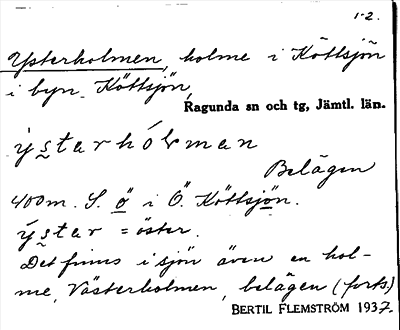 1-2.
Ysterholmen, holme i Köttsjön
i byn Köttsjön,
Ragunda sn och tg, Jämtl. län.
ẏstarhólman
Belägen
400 m. S. ö i Ö. Köttsjön.
ẏstar = öster.
Det finns i sjön även en hol-
me, Västerholmen, belägen (forts.)
BERTIL FLEMSTRÖM 1937.